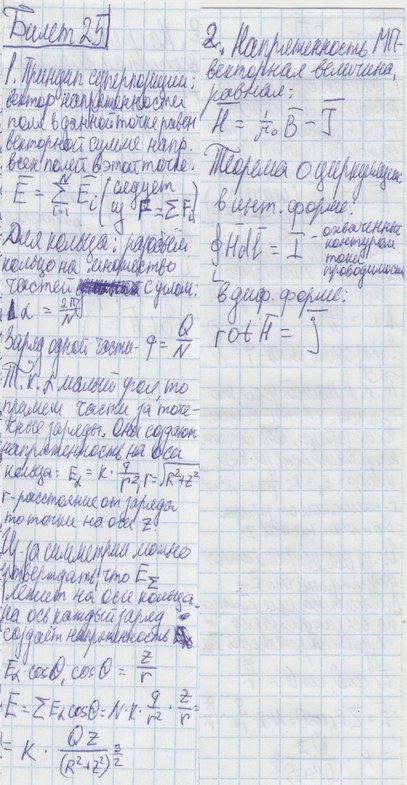 Билет 25
1. Принцип суперпозиции:
вектор напряженности
поля в данной точке равен
векторной сумме напр.
всех полей в этой точке.
E̅ = ∑ᵢ₌₁ᴺ E̅ᵢ (следует из F̅ = ∑F̅ᵢ)
Для кольца: разобьем
кольцо на множество
частей с углом:
α = 2π/N
Заряд одной части - q = Q/N
Т.к. α малый угол, то
примем части за точе-
чные заряды. Они создают
напряженность на оси
кольца: Eα = k · q/r², r = √(R²+z²)
r - расстояние от заряда
до точки на оси z
Из-за симметрии можно
утверждать, что E∑
лежит на оси кольца.
на ось каждый заряд
создает напряженность
Eα cosθ, cosθ = z/r
E = ∑Eα cosθ = N·k· q/r² · z/r =
= k · Qz/(R²+z²)^(3/2)
2. Напряженность МП-
векторная величина,
равная:
H̅ = 1/μ₀ B̅ - J̅
Теорема о циркуляции.
в инт. форме:
∮_L Hdl̅ = I - охваченный
контуром
токи
проводимости
в диф. форме:
rot H̅ = j̅